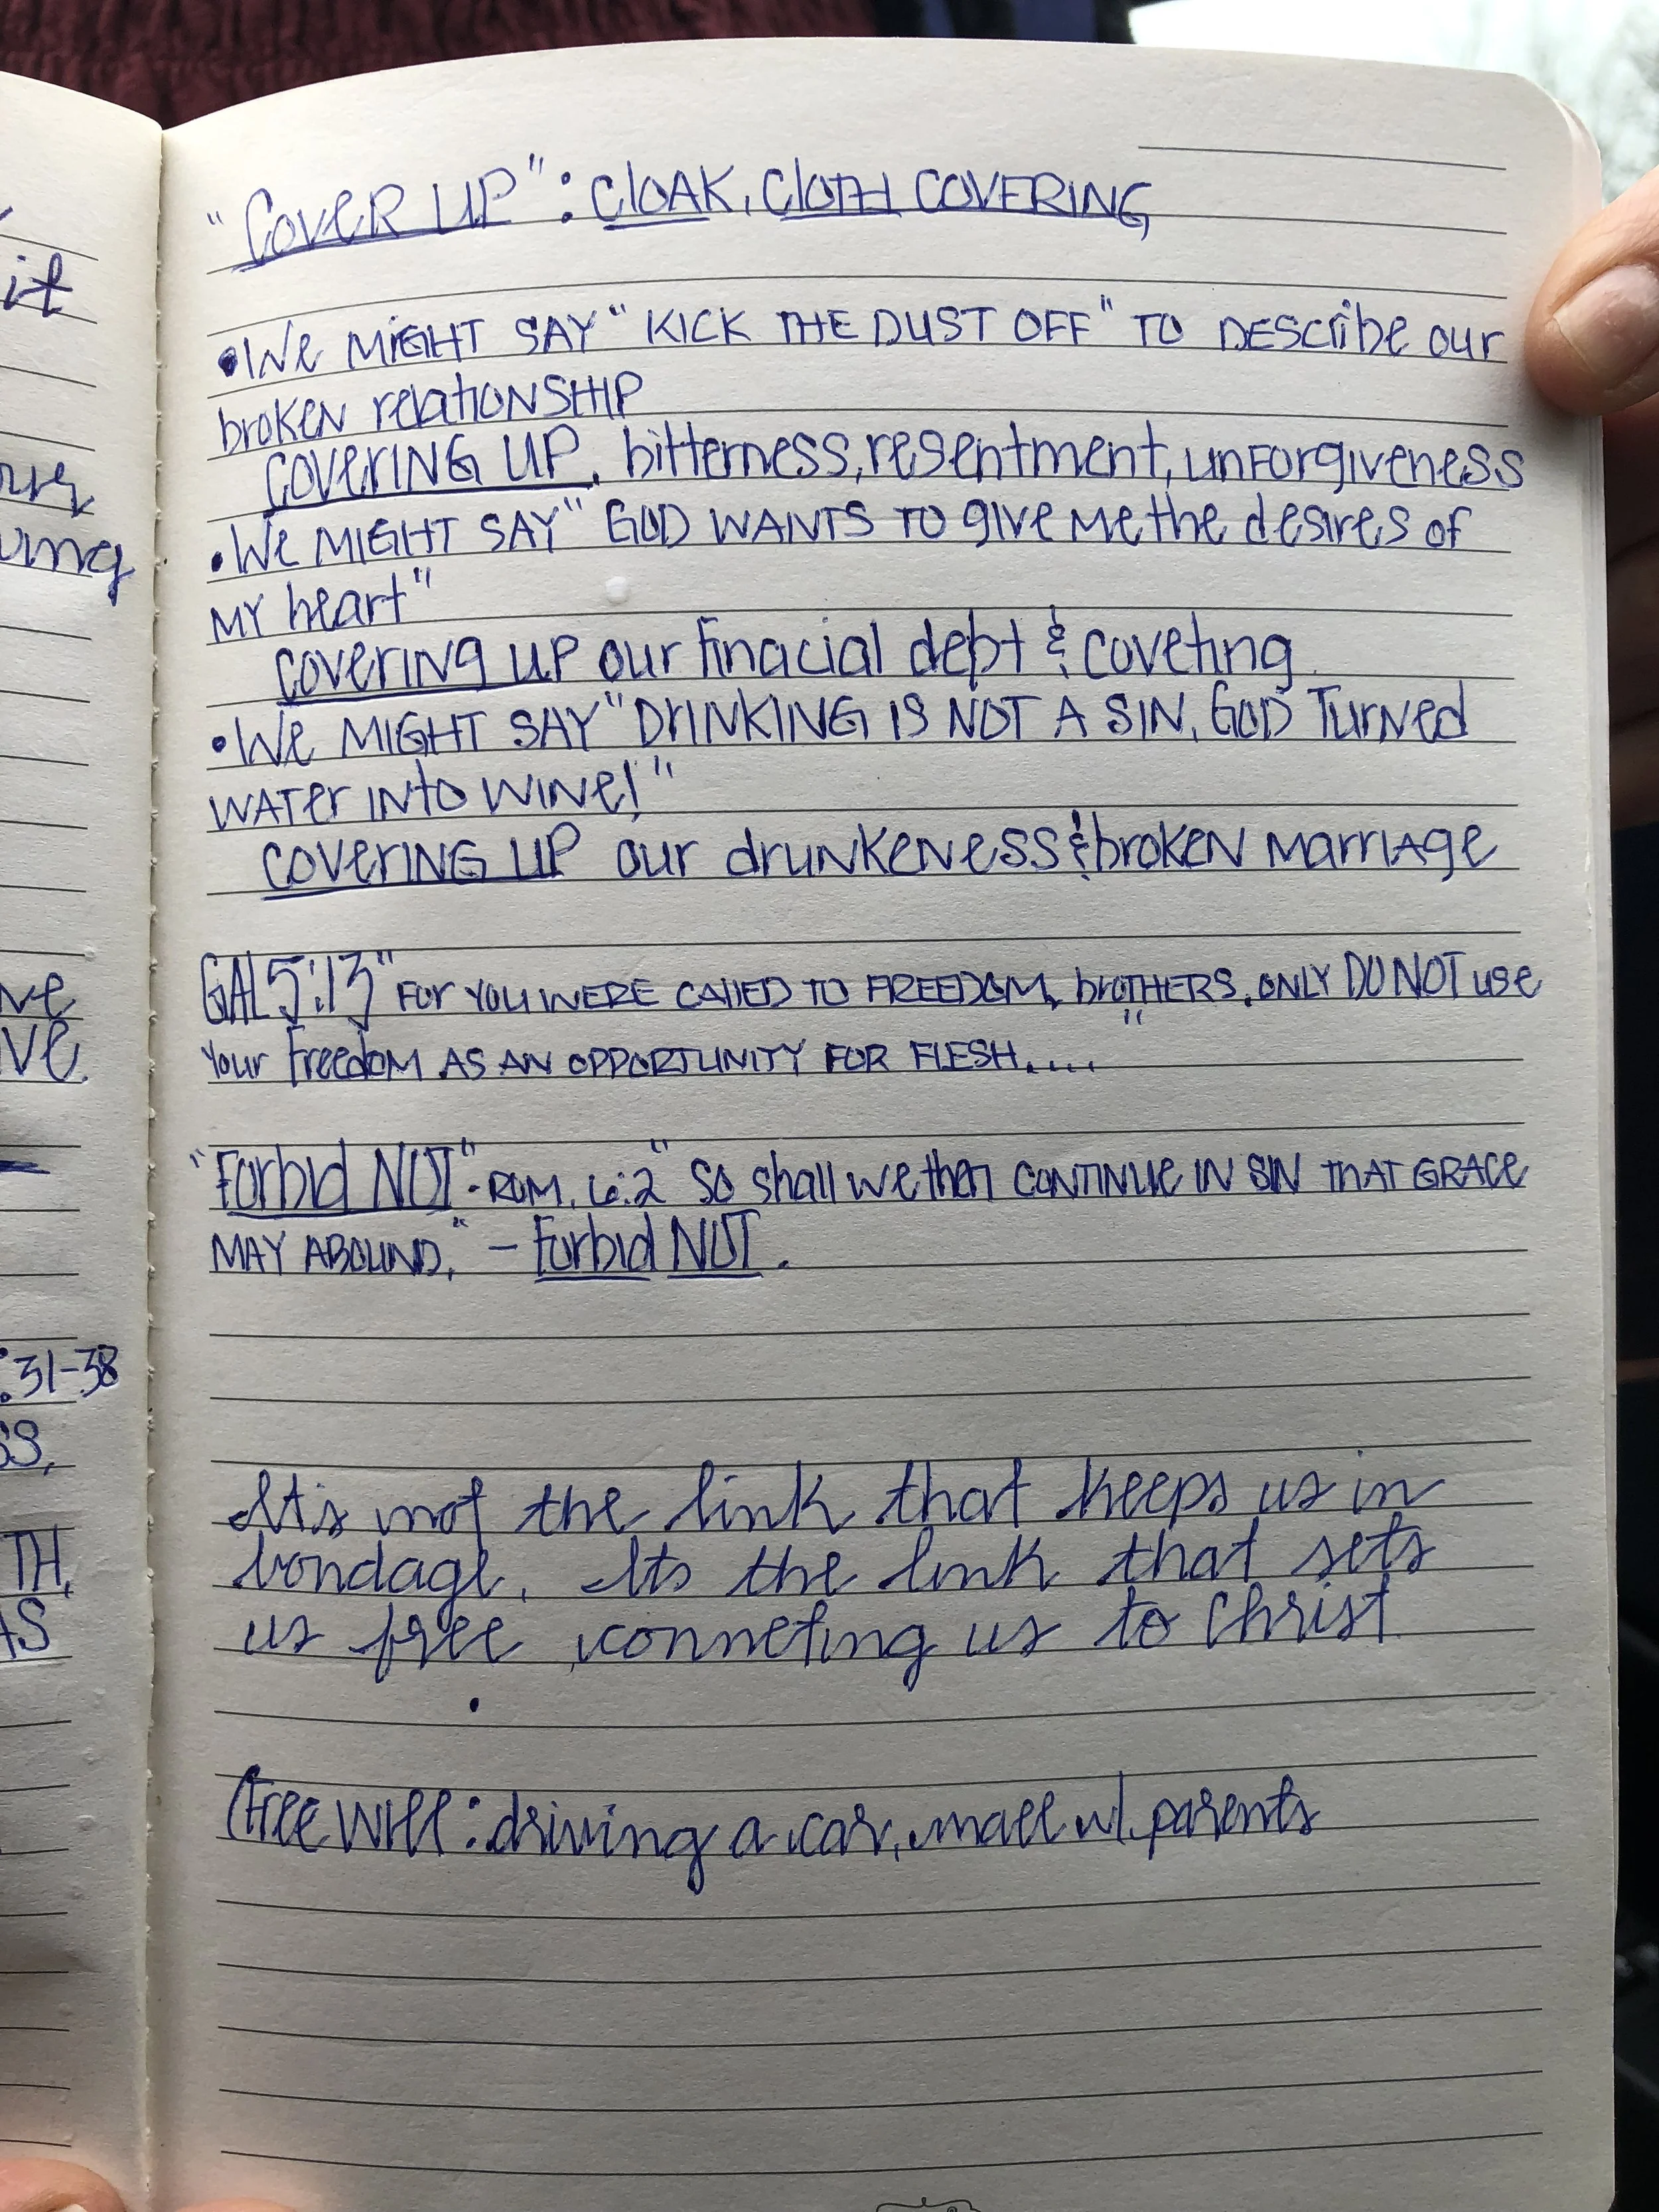 "Cover UP": Cloak, Cloth Covering
• We might say "Kick the dust off" to describe our
broken relationship
covering up, bitterness, resentment, unforgiveness
• We might say "God wants to give me the desires of
my heart"
covering up our finacial debt & coveting
• We might say "Drinking is not a sin, God turned
water into wine!"
covering up our drunkeness & broken marriage
Gal 5:13 "For you were called to freedom, brothers, only do not use
your freedom as an opportunity for flesh....."
"Forbid NOT" - Rom. 6:2 "So shall we then continue in sin that grace
may abound," - Forbid NOT.
It's not the link that keeps us in
bondage, Its the link that sets
us free, conneting us to Christ
(free will: driving a car, mall w/ parents
it
ve
ve.
:31-38
TH,
AS